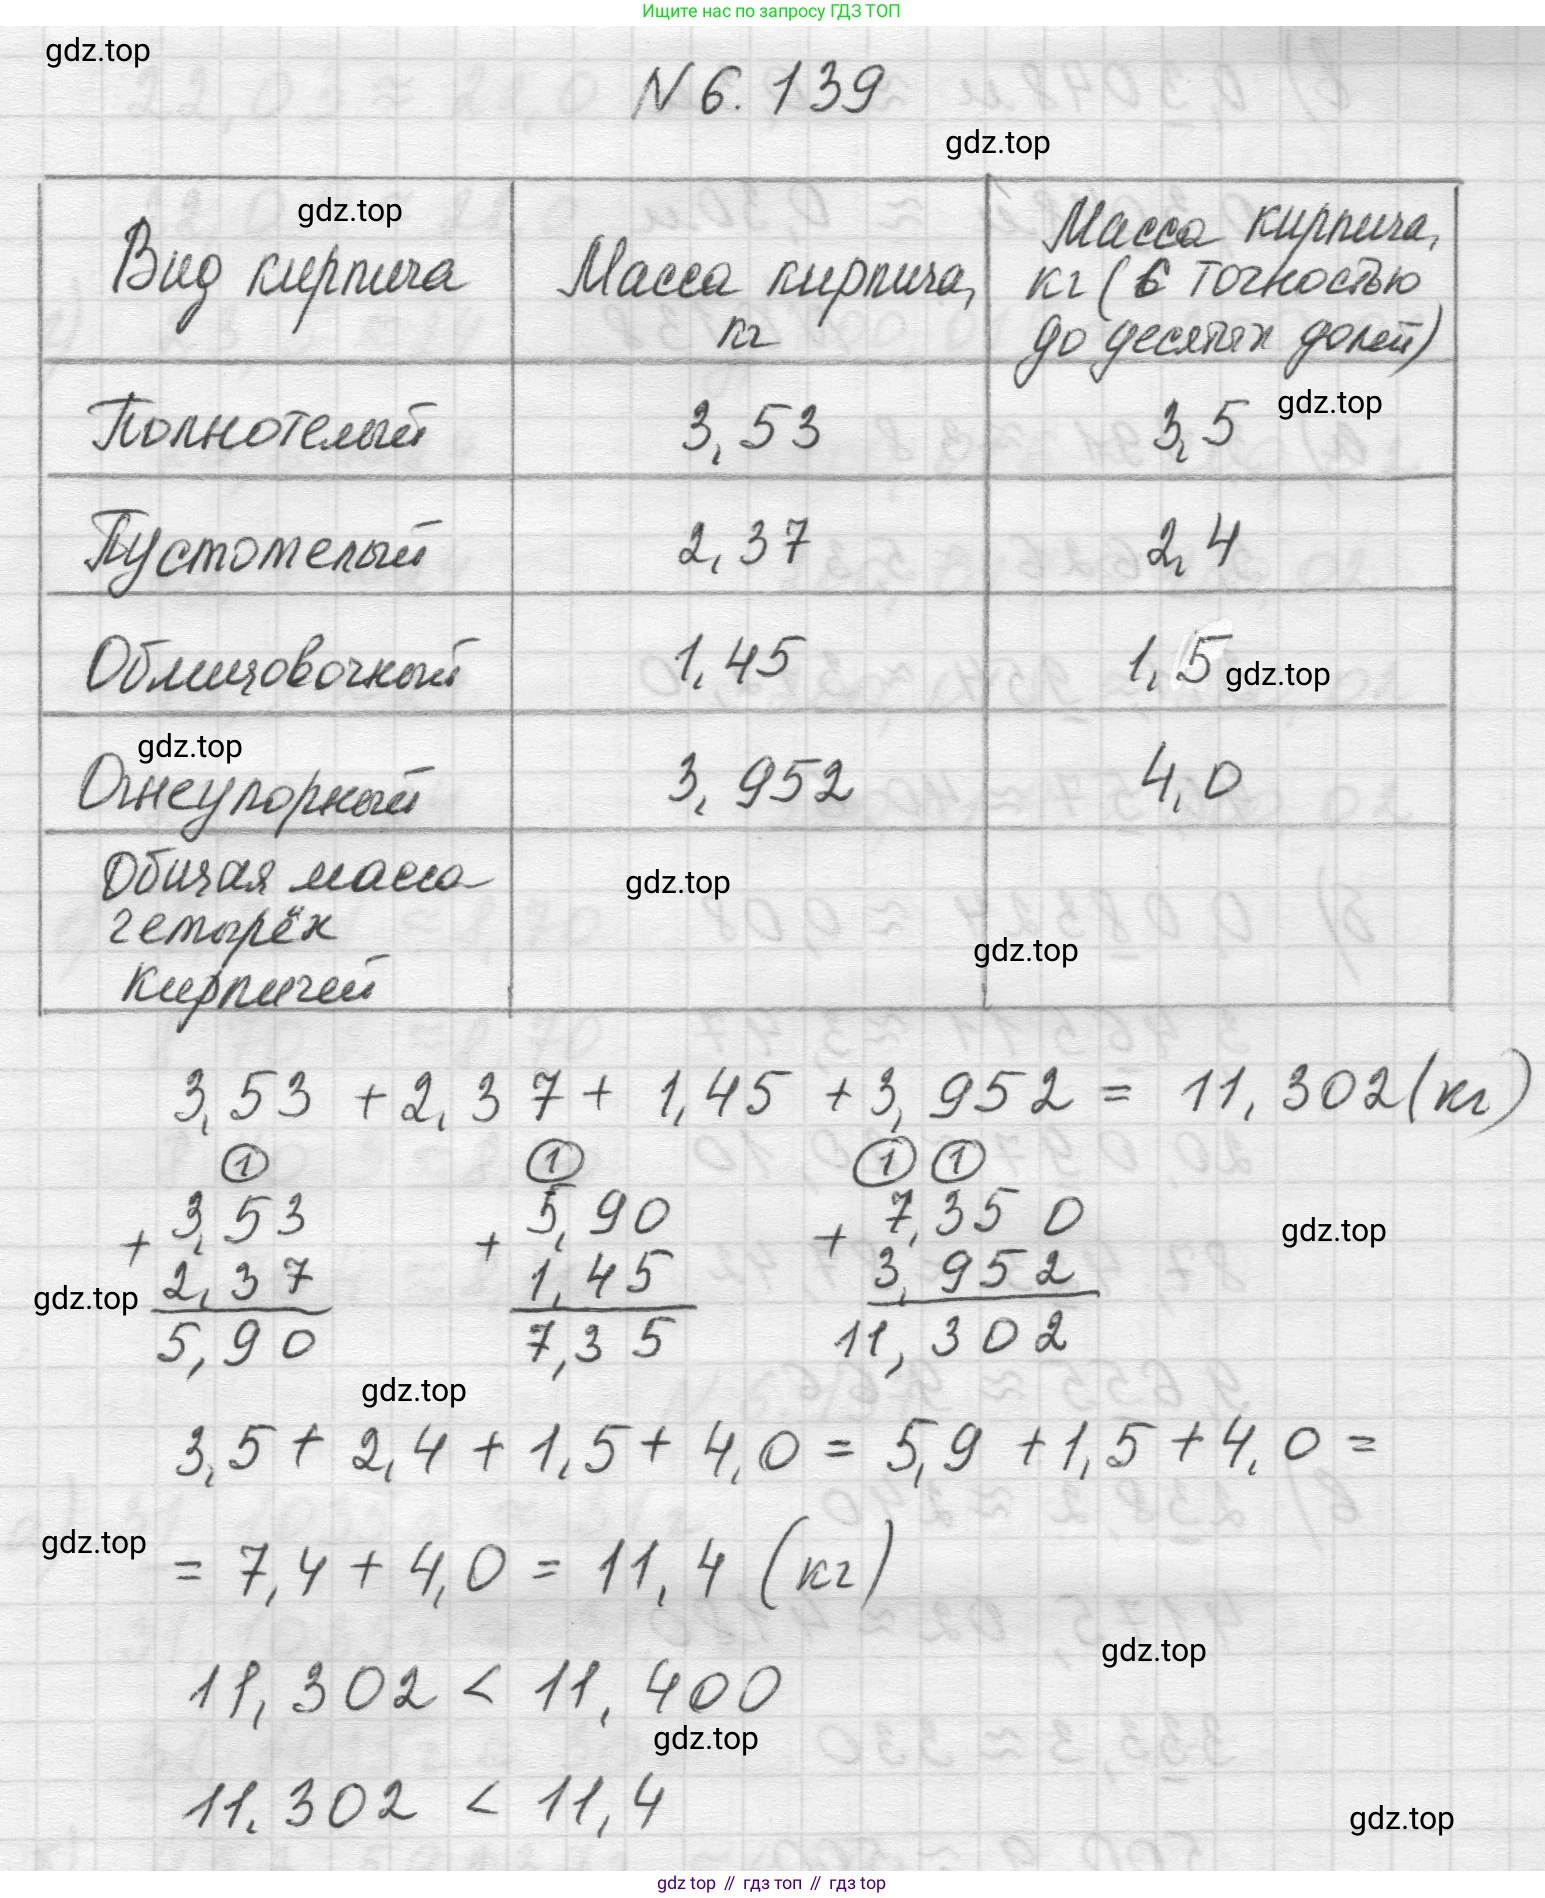 Ищите нас по запросу ГДЗ ТОП
gdz.top
N 6.139
gdz.top
gdz.top
Вид кирпича
Масса кирпича, кг
Масса кирпича, кг (с точностью до десятых долей)
Полнотелый 3,53 3,5
gdz.top
Пустотелый 2,37 2,4
Облицовочный 1,45 1,5
gdz.top
gdz.top
Огнеупорный 3,952 4,0
Общая масса
четырёх
кирпичей
gdz.top
gdz.top
3,53 + 2,37 + 1,45 + 3,952 = 11,302 (кг)
1 1 1 1
+ 3,53 + 5,90 + 7,350
gdz.top
2,37 1,45 3,952
gdz.top
5,90 7,35 11,302
gdz.top
3,5 + 2,4 + 1,5 + 4,0 = 5,9 + 1,5 + 4,0 =
gdz.top
= 7,4 + 4,0 = 11,4 (кг)
gdz.top
11,302 < 11,400
gdz.top
11,302 < 11,4
gdz.top
gdz top // гдз топ // гдз top